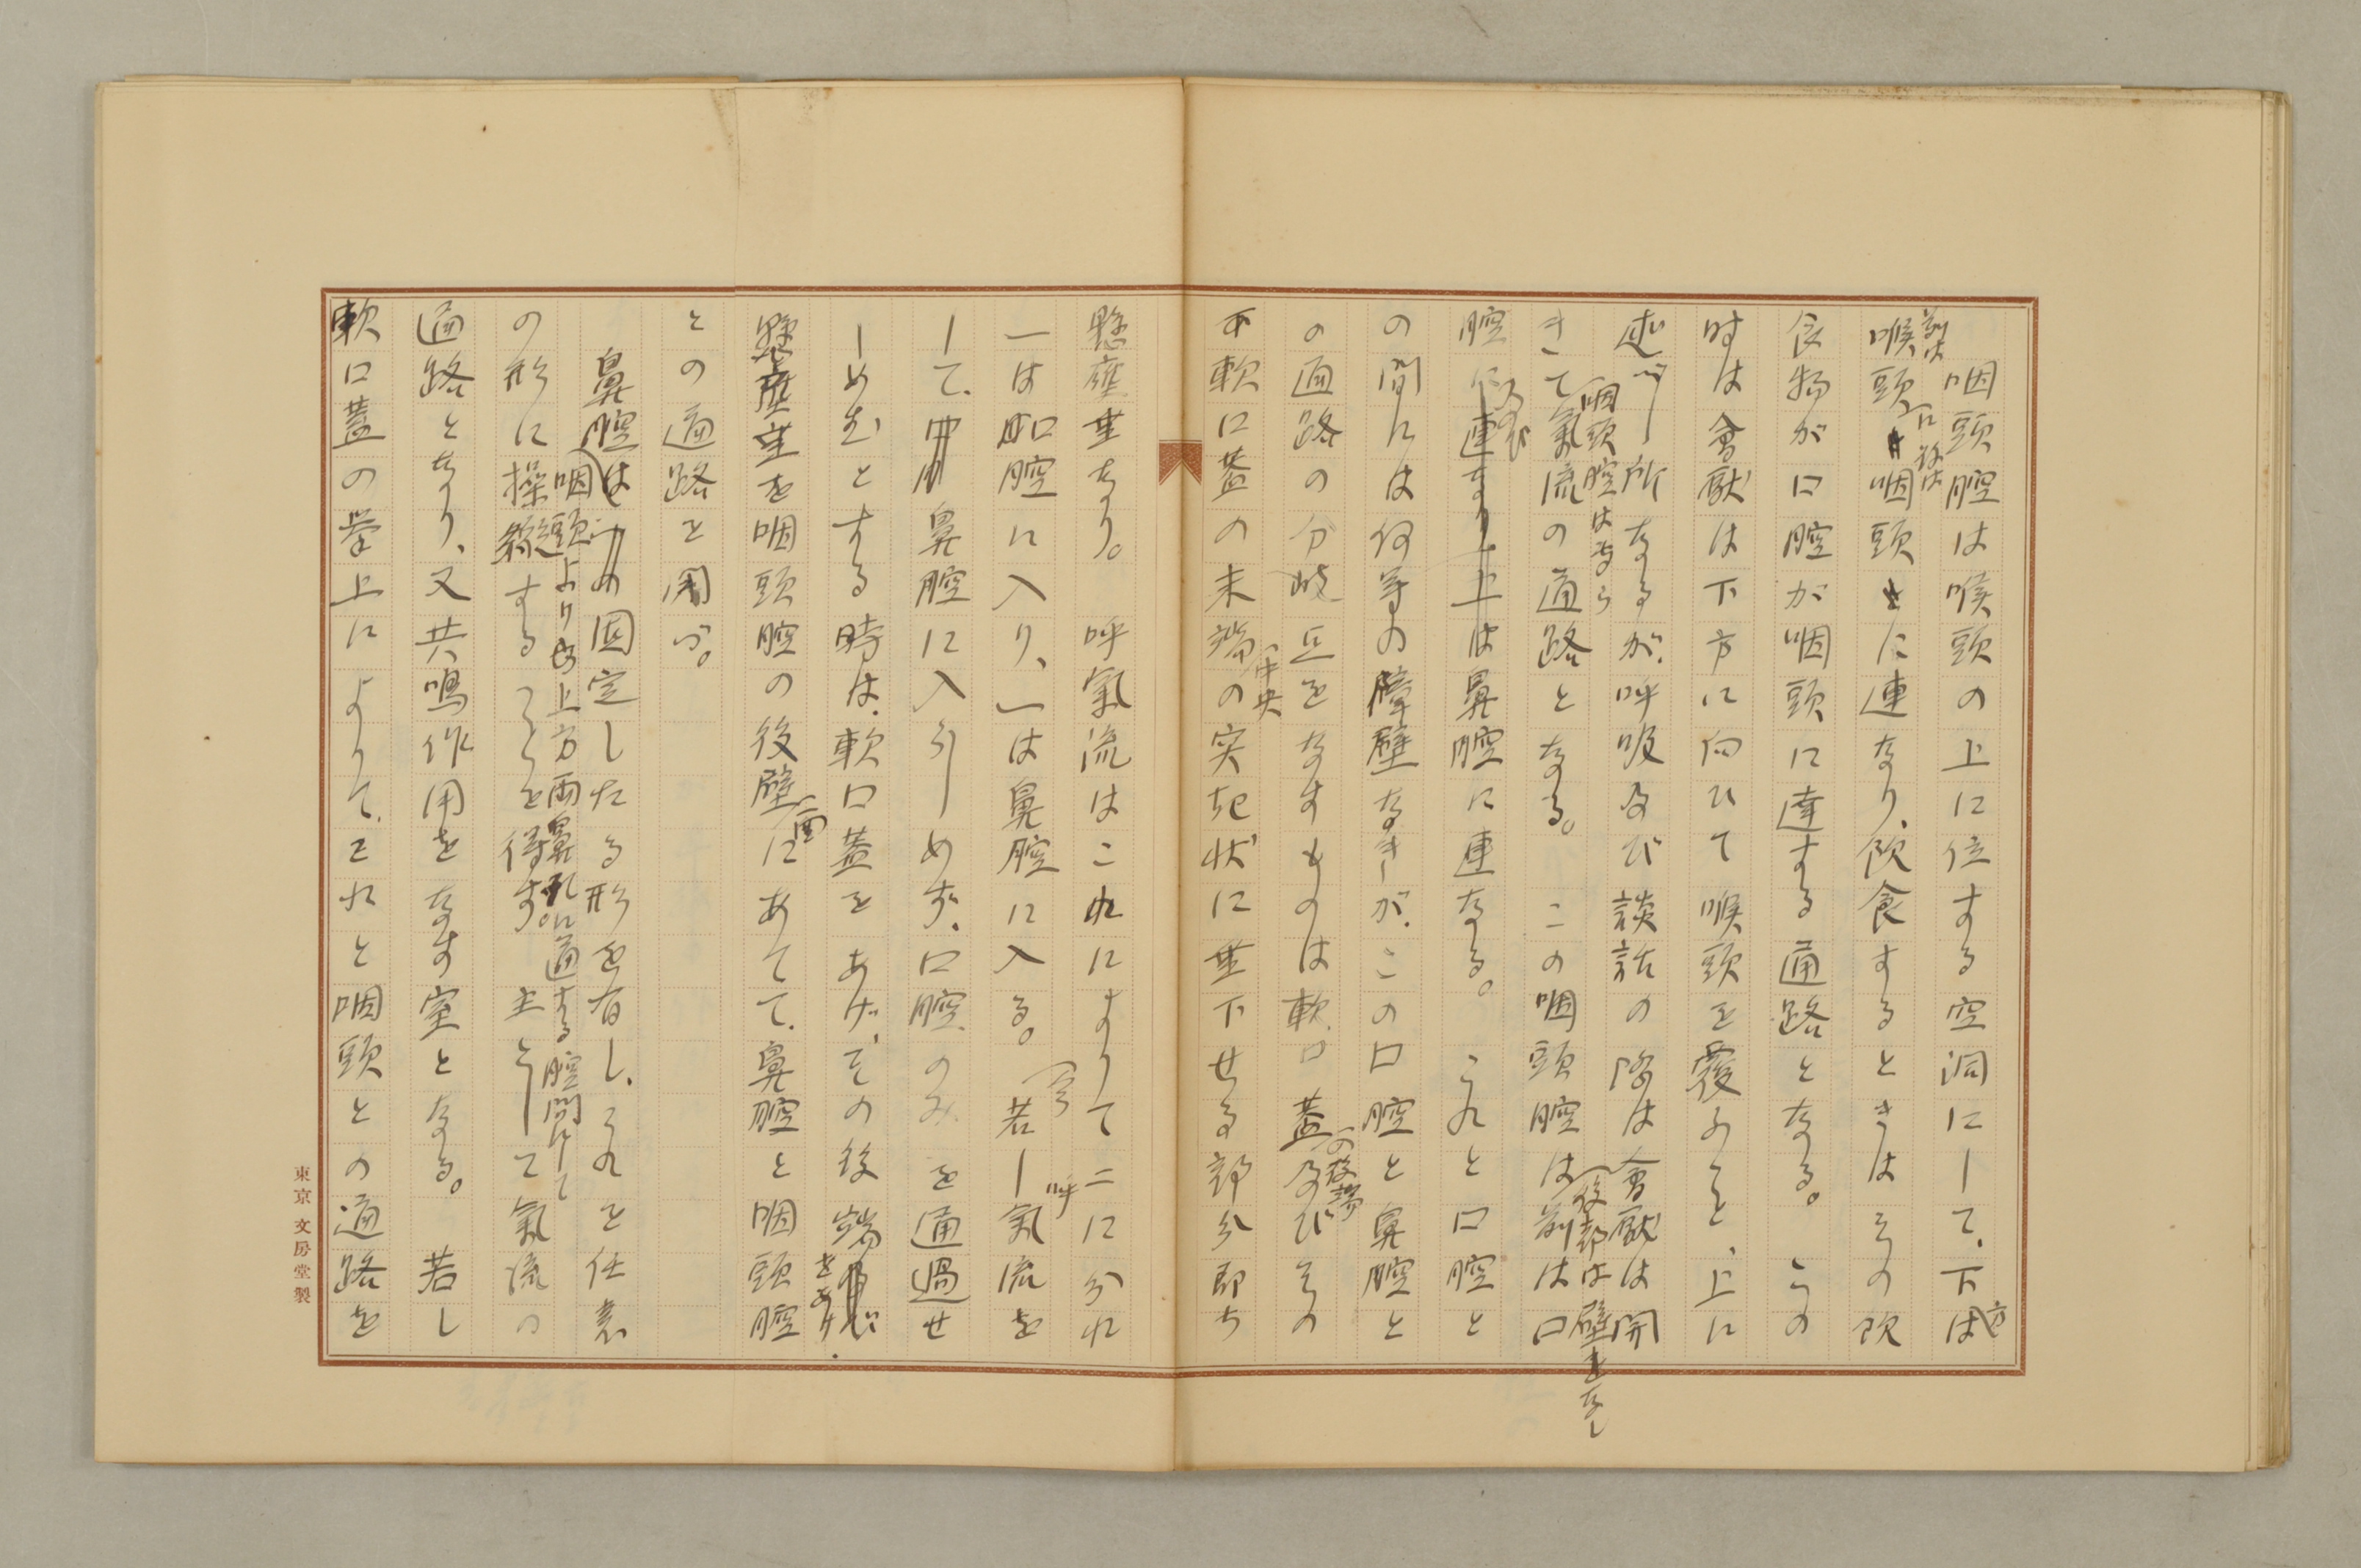 咽頭腔は喉頭の上に位する空洞にして、下方は
喉頭に、後は咽頭に連なり、飲食するときはその飲
前は
食物が口腔が咽頭に達する通路となる。この
時は會厭は下方に向ひて喉頭を覆ふこと、上に
述べし所なるが、呼吸及び談話の際は會厭は開
咽頭腔はなら
きて氣流の通路となる。この咽頭腔は前は口
後部は壁をなし
腔に連なり上は鼻腔に連なる。これと口腔と
及び
の間には何等の障壁なきが、この口腔と鼻腔と
の通路の分岐点をなすものは軟口蓋及びその
の後端
軟口蓋の末端の突起状に垂下せる部分即ち
中央
懸壅垂なり。呼氣流はこれによりて二に分れ
一は口腔に入り、一は鼻腔に入る。若し氣流を
今
呼
して、鼻腔に入らしめず、口腔のみを通過せ
しめむとする時は、軟口蓋をあげ、その後端
をあげ、
懸壅垂を咽頭腔の後壁にあてて、鼻腔と咽頭腔
面
との通路を閉づ。
鼻腔は固定したる形を有し、これを任意
咽頭より上方両鼻孔に通ずる腔間にして
の形に操縦することを得ず。主として氣流の
通路となり、又共鳴作用をなす室となる。若し
軟口蓋の挙上によりて、これと咽頭との通路を
東京 文房堂製